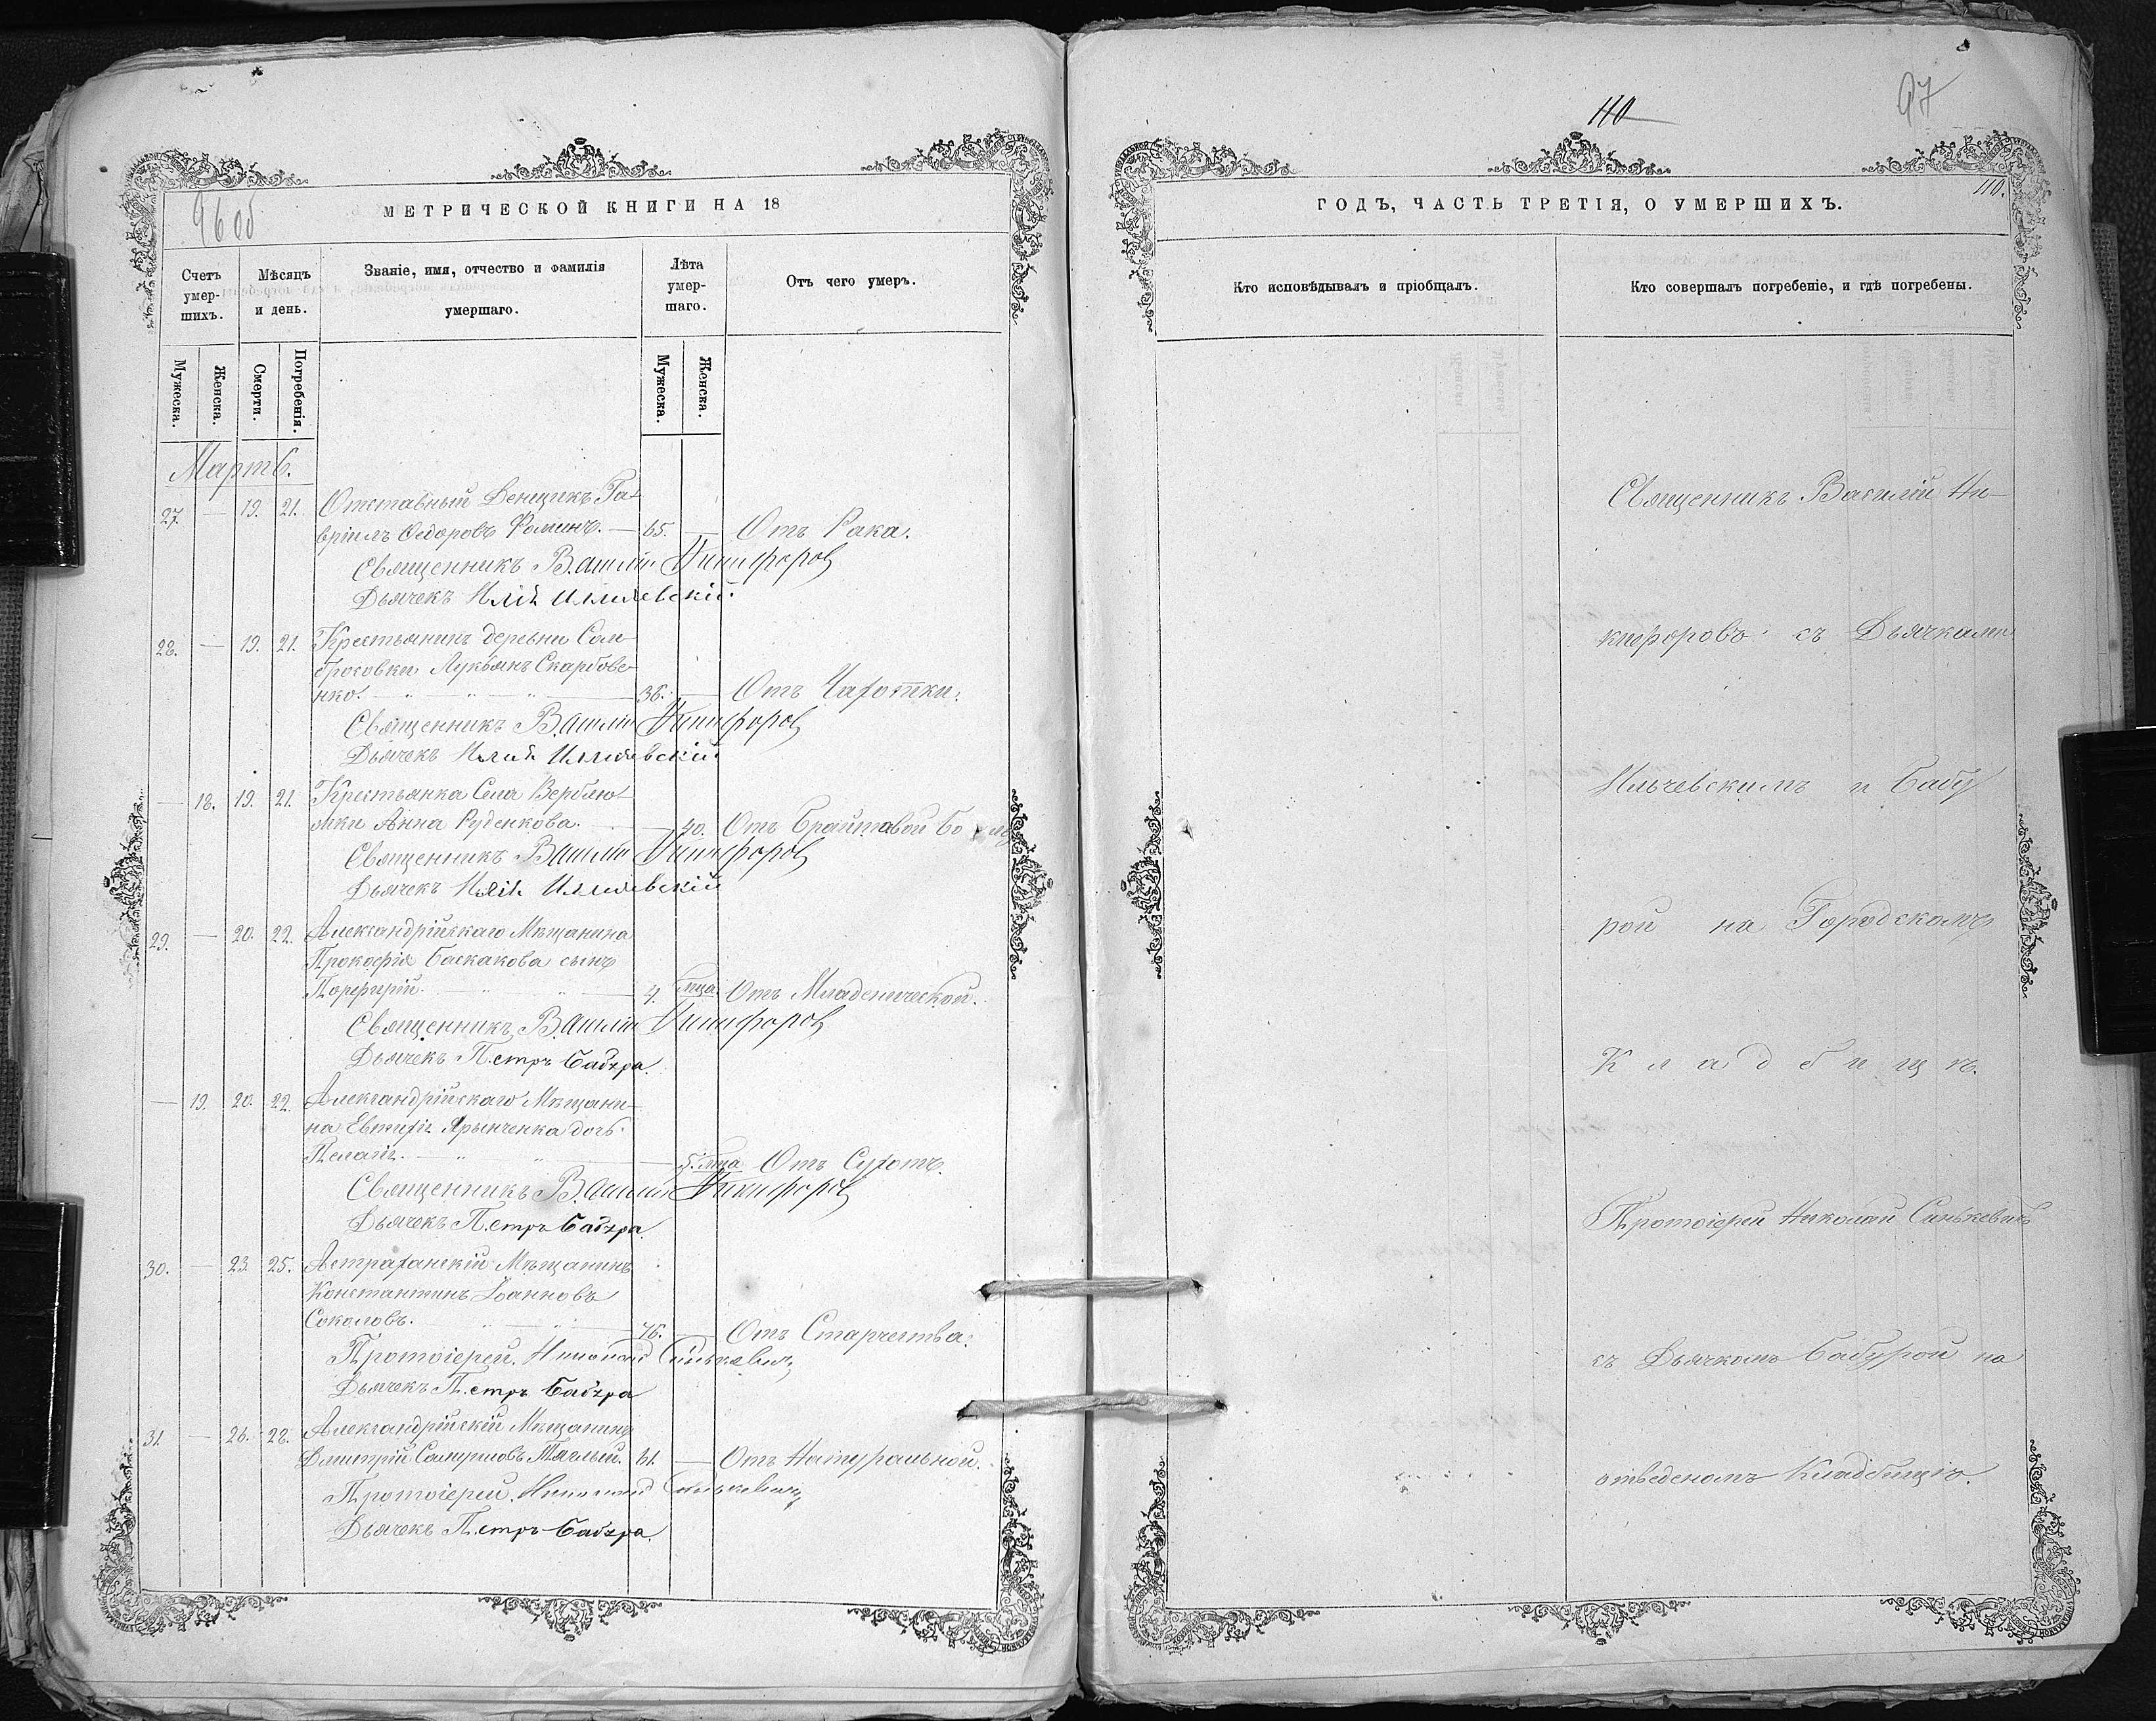 96 об
МЕТРИЧЕСКОЙ КНИГИ НА 18
Счетъ умер-шихъ.
Мѣсяцъ и день.
Званіе, имя, отчество и фамилія умершаго.
Лѣта умер-шаго.
Отъ чего умеръ.
Мужеска. Женска. Смерти. Погребенія. Мужеска. Женска.
Мартъ.
27. — 19. 21. Отставный Денщикъ Га-
вріилъ Федоровъ Фоминъ. — 65. — Отъ Рака.
Священникъ Василій Никифоров
Дьячекъ Илія Ильчевскій.
28. — 19. 21. Крестьянинъ деревни Сам-
броковки Лукьянъ Скарбове-
нко. — " — " — " — 36. — Отъ Чахотки.
Священникъ Василій Никифоров
Дьячекъ Илія Ильчевскій
— 18. 19. 21. Крестьянка Села Верблю-
жки Анна Руденкова. — 40. Отъ
Священникъ Василій Никифоров
Дьячекъ Илія Ильчевскій
29. — 20. 22. Александрійскаго Мѣщанина
Прокофія Баскакова сынъ
Порфирій. — " — " — 4. мца. Отъ Младенческой.
Священникъ Василій Никифоров
Дьячекъ Петръ Бабура.
— 19. 20. 22. Александрійскаго Мѣщани-
на Евтихія Ярынченка дочь
Пелагія. — " — " — 5. мца Отъ Сухотъ.
Священникъ Василій Никифоров
Дьячекъ Петръ Бабура.
30. — 23. 25. Астраханскій Мѣщанинъ
Константинъ Іоанновъ
Соколовъ. — " — " — 76. — Отъ Старчества.
Протоіерей Николай Санькевич
Дьячекъ Петръ Бабура
31. — 26. 28. Александрійскій Мѣщанинъ
Дмитрій 61. — Отъ Натуральной.
Протоіерей Николай Санькевич
Дьячекъ Петръ Бабура.
110
97
110.
ГОДЪ, ЧАСТЬ ТРЕТІЯ, О УМЕРШИХЪ.
Кто исповѣдывалъ и пріобщалъ.
Кто совершалъ погребеніе, и гдѣ погребены.
Священникъ Василій Ни-
кифоровъ съ Дьячками
Ильчевскимъ и Бабу
рой на Городскомъ
Кладбищѣ.
Протоіерей Николай Санькевичъ
съ Дьячкомъ Бабурой на
отведеномъ Кладбищѣ.